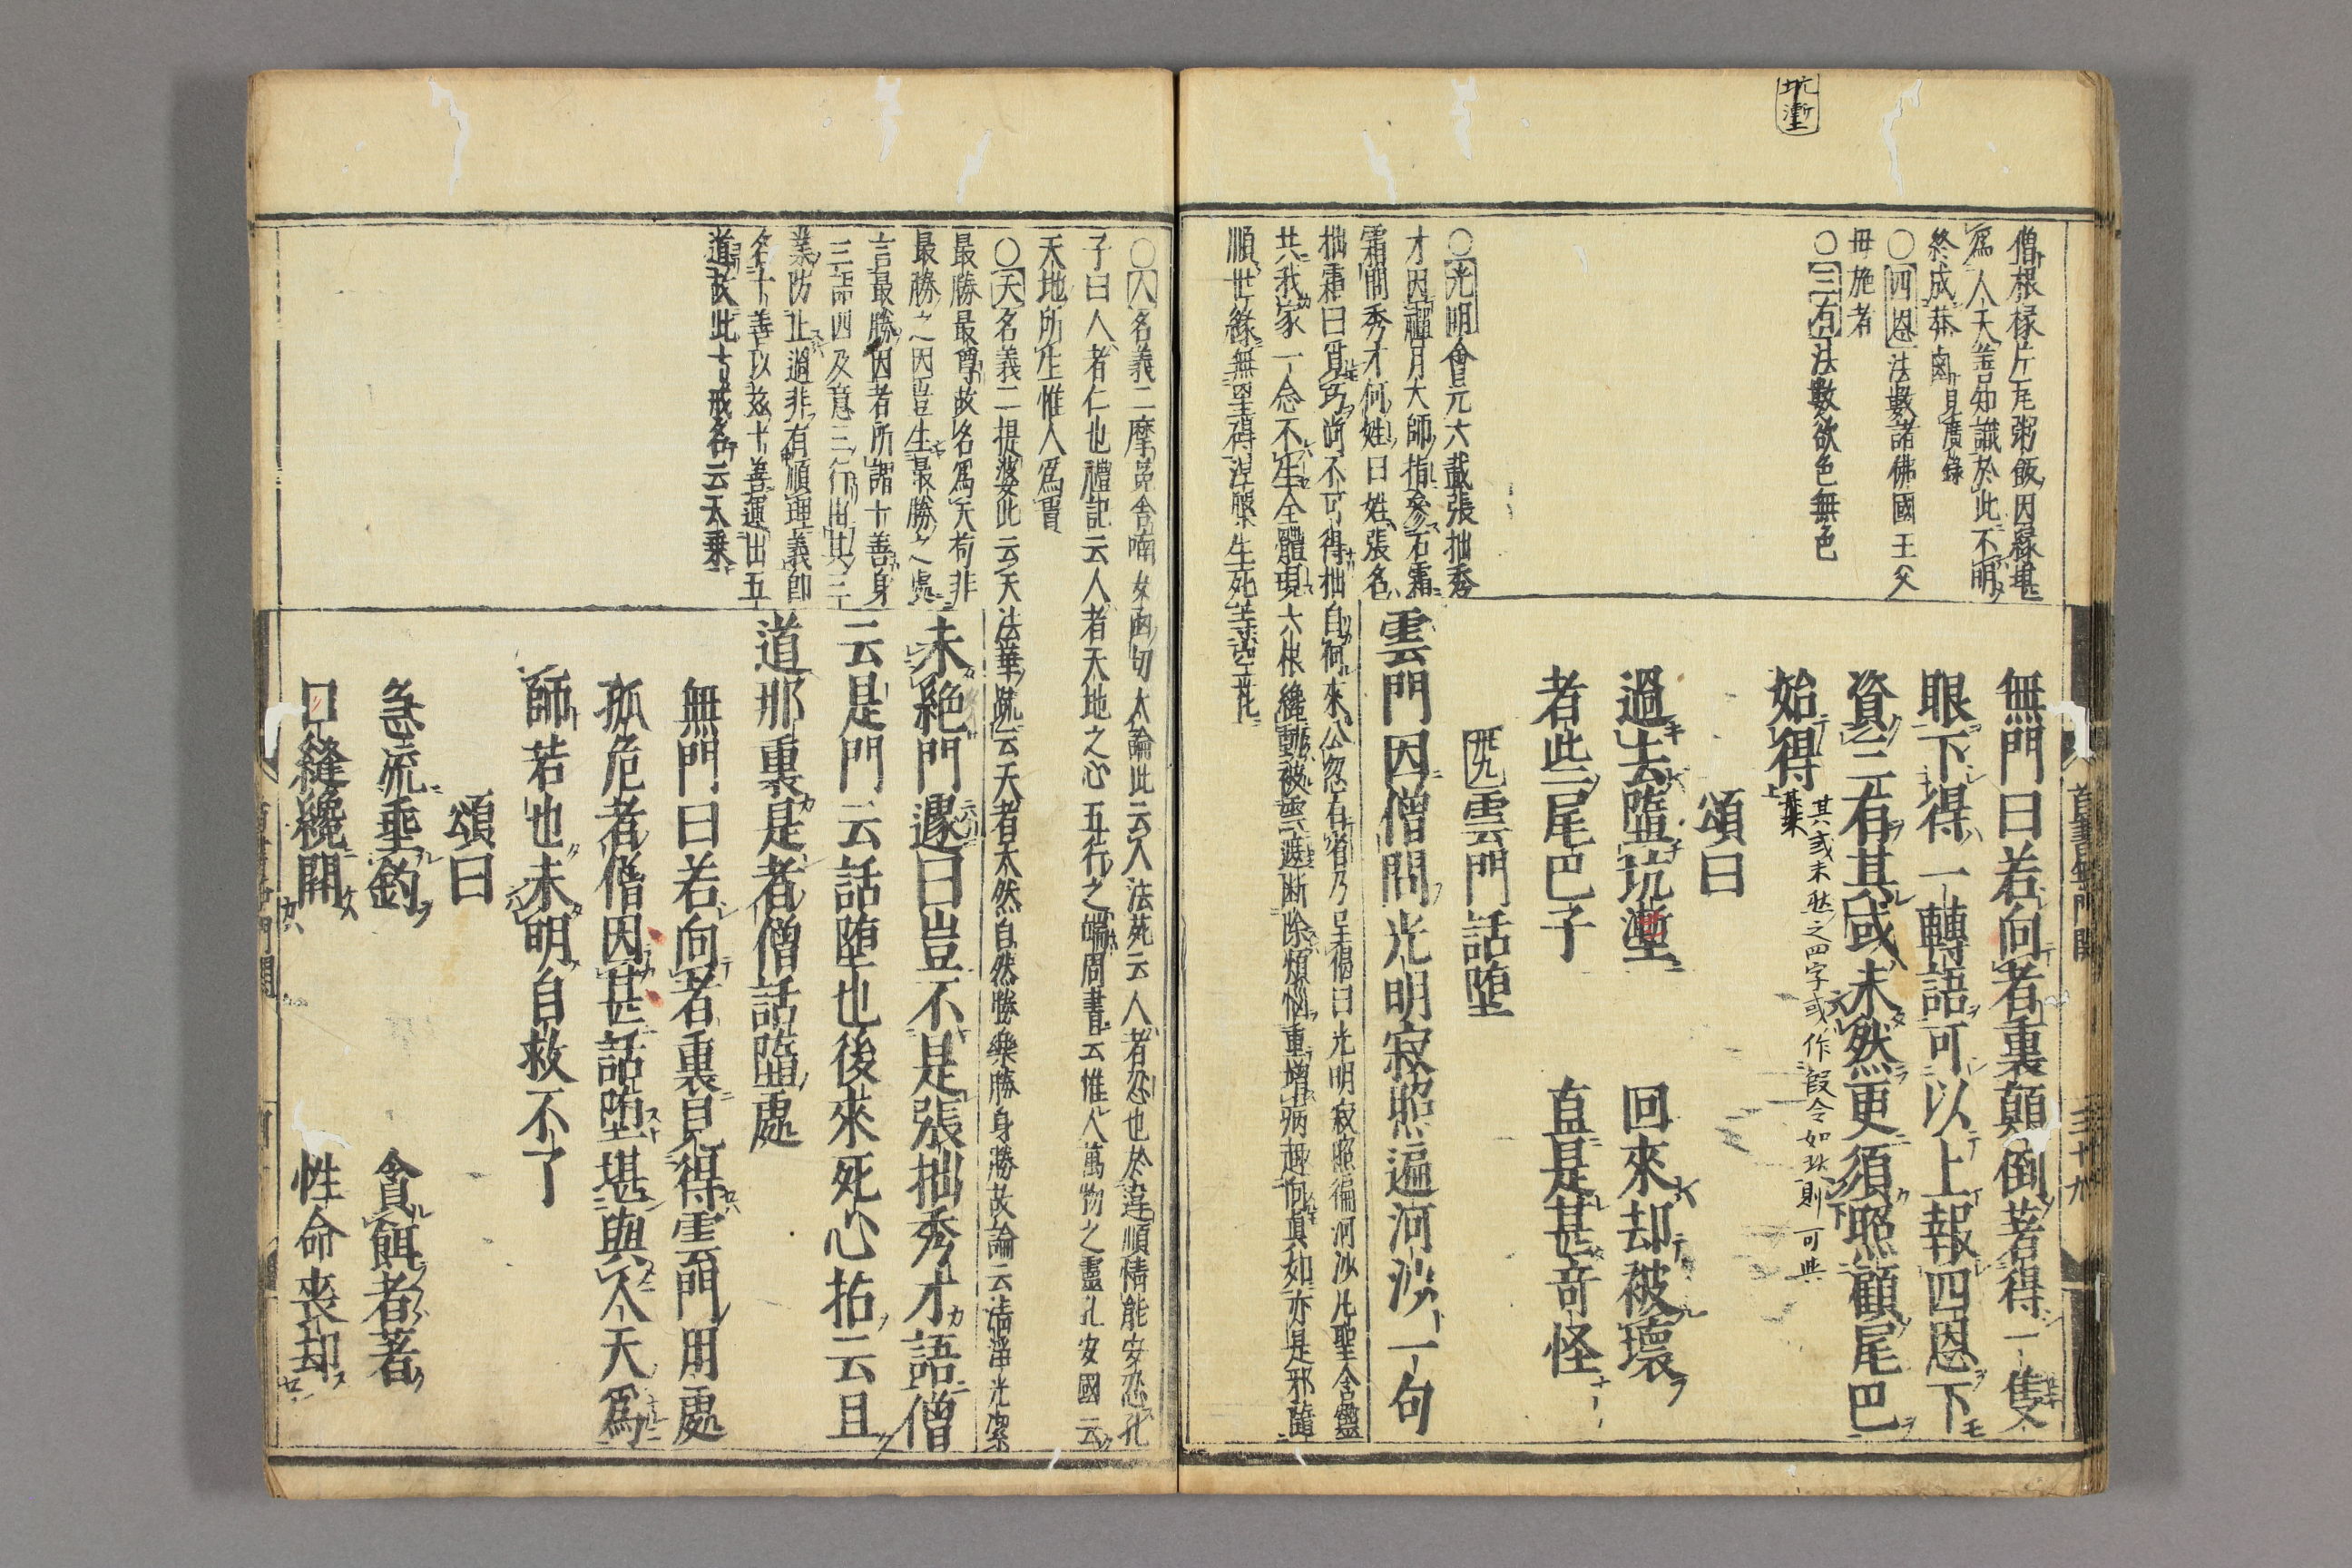 坑塹
僧根椽片瓦粥飯因縁堪
爲人天善知識於此不明
終成莽鹵見廣錄
〇四恩法數諸佛國王父
母施者
〇三有法數欲色無色
無門曰若向者裏顛倒著得一隻
眼下得一轉語可以上報四恩下
資三有其或未然更須照顧尾巴
始得
其或未然之四字或作假令如此則可與
頌曰
過去墮坑塹 回來却被壞
者些尾巴子 直是甚奇怪
卅九雲門話墮
雲門因僧問光明寂照遍河沙一句
〇光明會元六載張拙秀
才因禪月大師指參石霜
霜問秀才何姓曰姓張名
拙霜曰覓巧尚不可得拙自何來公忽有省乃呈偈曰光明寂照徧河沙凡聖含靈
共我家一念不生全體現六根纔動被雲遮斷除煩惱重增病趣向真如亦是邪隨
順世緣無罣碍涅槃生死等空花
〇人名義二摩㝹舍喃女函切大論此云人法苑云人者忍也於違順情能安忍孔
子曰人者仁也禮記云人者天地之心五行之端周書云惟人萬物之靈孔安國云
天地所生惟人爲貴
〇天名義二提婆此云天法華疏云天者天然自然勝樂勝身勝故論云清淨光潔
最勝最尊故名爲天苟非
最勝之因豈生最勝之處
言最勝因者所謂十善身
三語四及意三行由其三
業防止過非有順理義即
名十善以茲十善運出五
道故此十戒名云天乘
未絕門遽曰豈不是張拙秀才語僧
云是門云話墮也後來死心拈云且
道那裏是者僧話墮處
無門曰若向者裏見得雲門用處
孤危者僧因甚話墮堪與人天爲
師若也未明自救不了
頌曰
急流垂釣 貪餌者著
口縫纔開 性命喪却